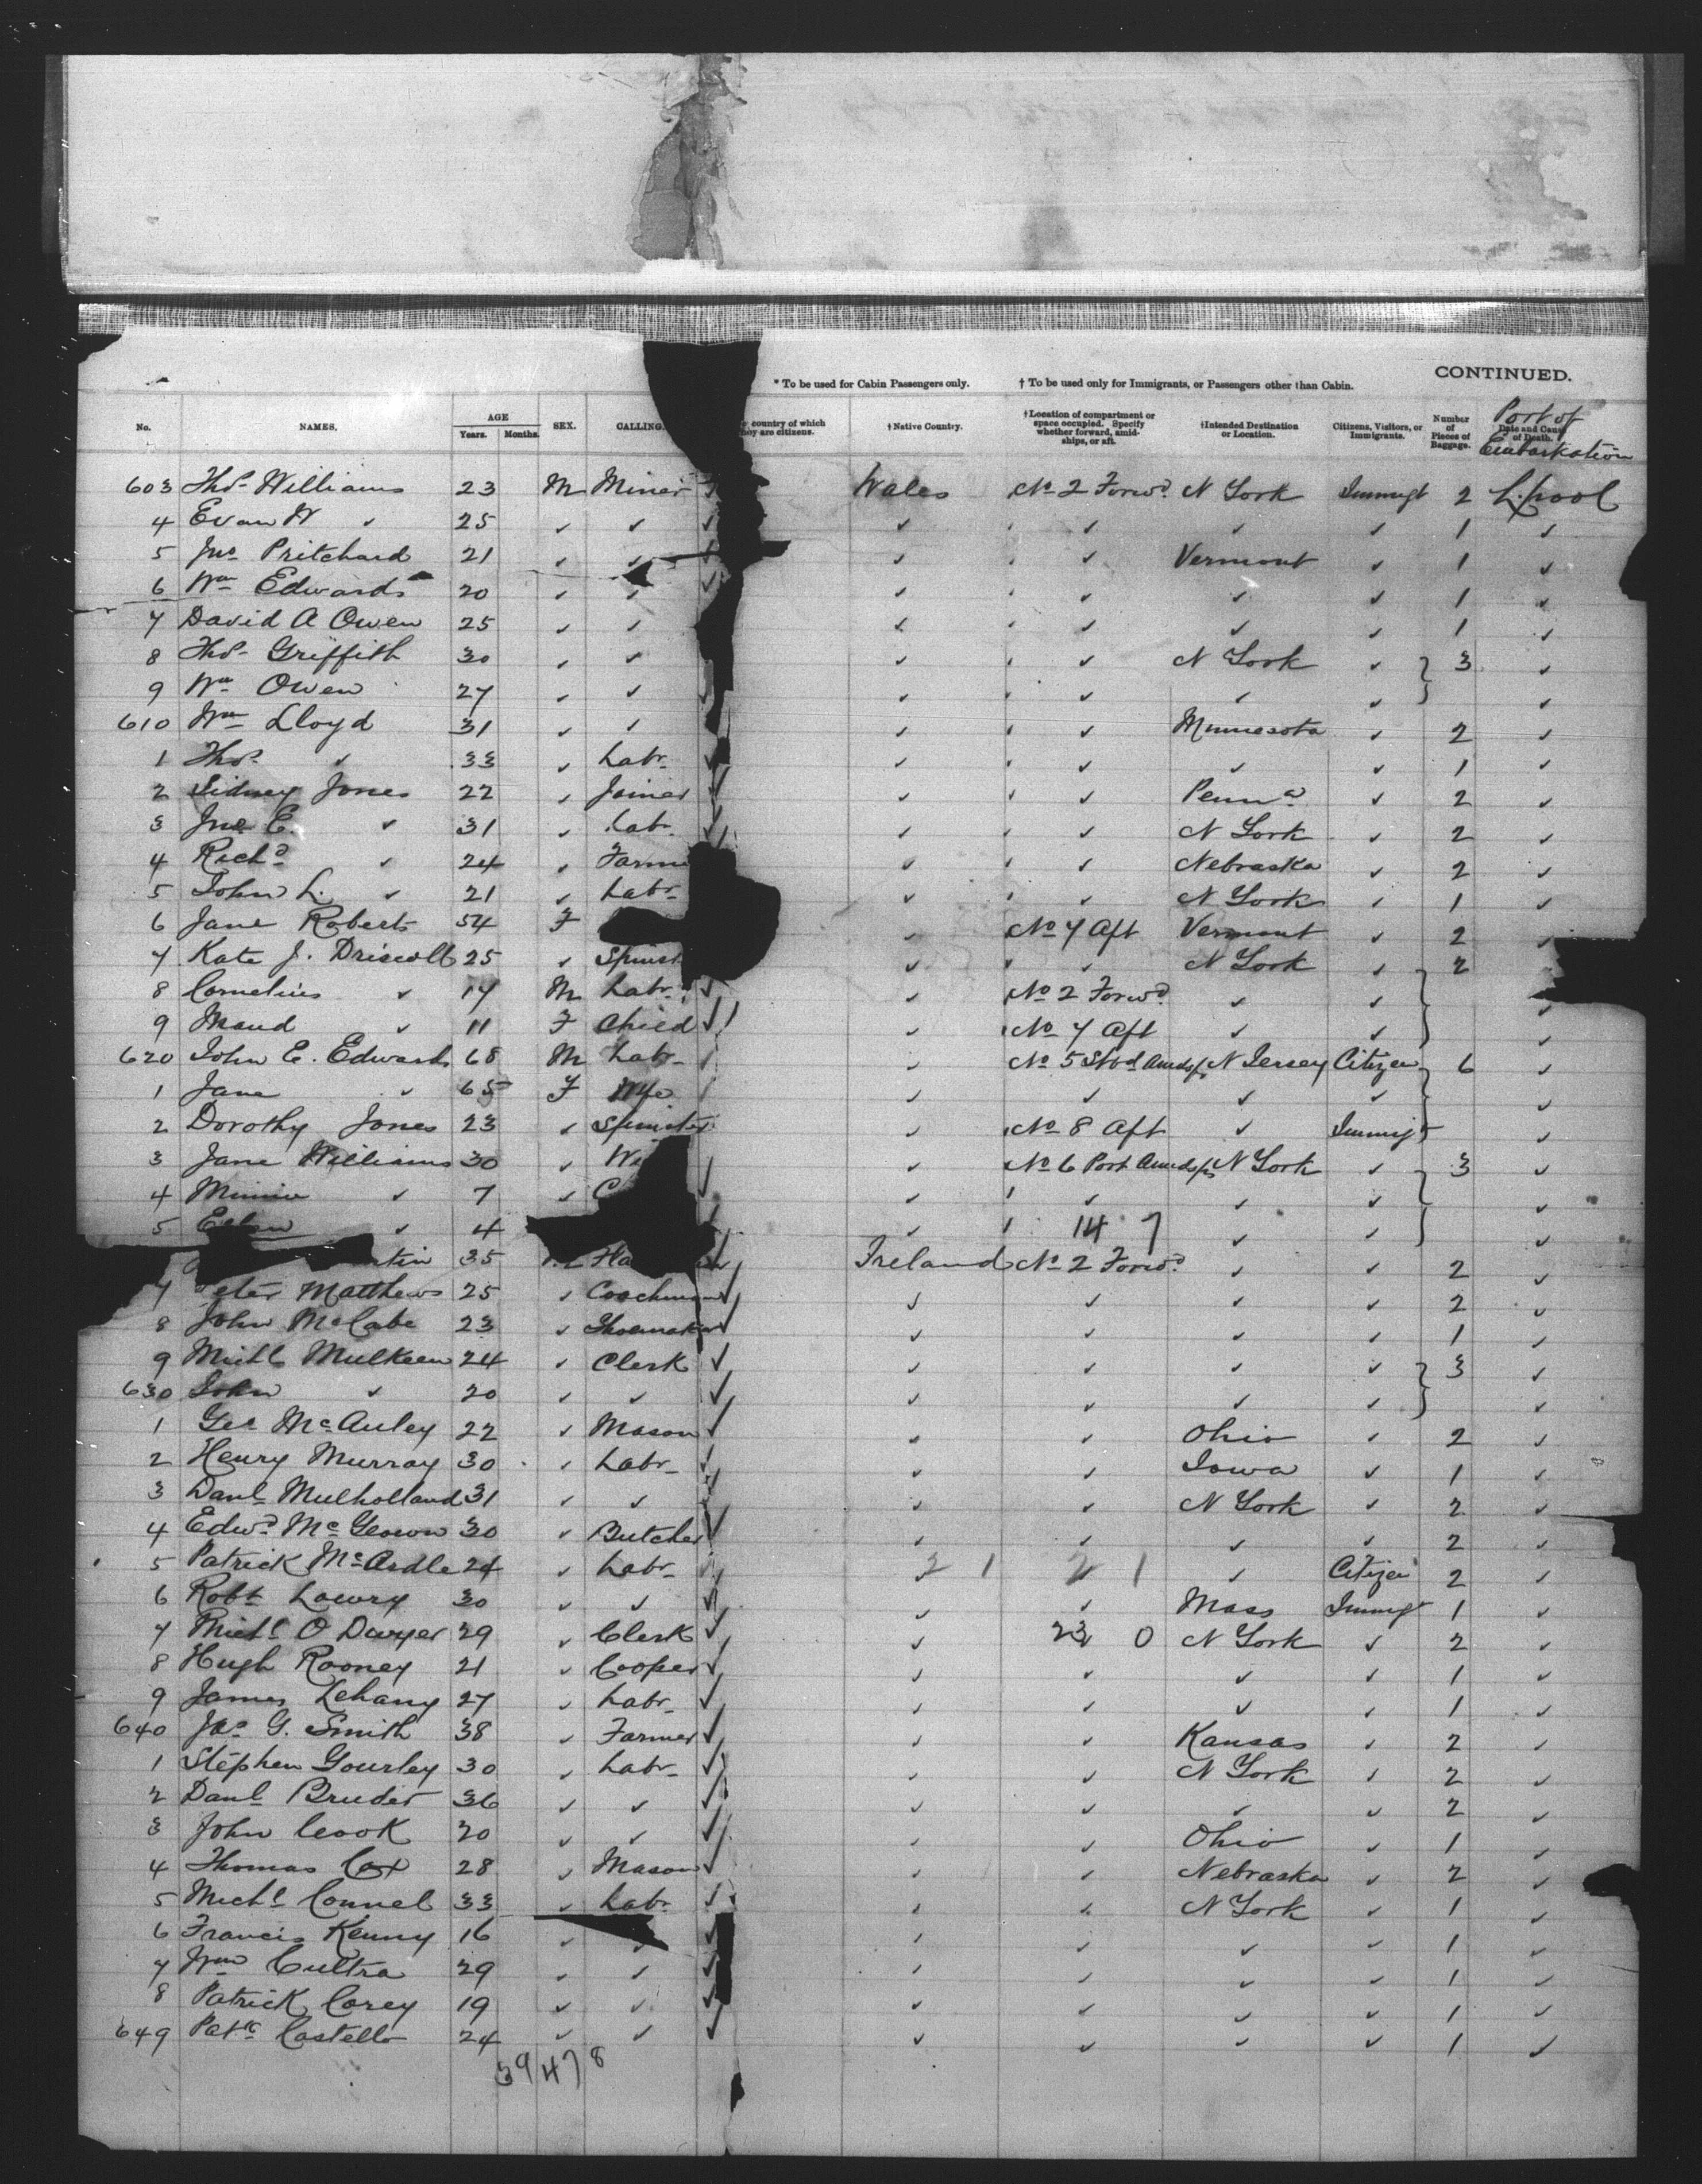 CONTINUED.
* To be used for Cabin Passengers only. † To be used only for Immigrants, or Passengers other than Cabin.
No. NAMES. AGE Years. Months. SEX. CALLING. country of which they are citizens. †Native Country. †Location of compartment or space occupied. Specify whether forward, amidships, or aft. †Intended Destination or Location. Citizens, Visitors, or Immigrants. Number of Pieces of Baggage. Date and Cause of Death. Port of Embarkation
603 Thos Williams 23 M Miner Wales No 2 Forwd N York Immigt 2 L.pool
4 Evan W ✓ 25 ✓ ✓ ✓ ✓ ✓ ✓ ✓ 1 ✓
5 Jno Pritchard 21 ✓ ✓ ✓ ✓ ✓ Vermont ✓ 1 ✓
6 Wm Edwards 20 ✓ ✓ ✓ ✓ ✓ ✓ ✓ 1 ✓
7 David A Owen 25 ✓ ✓ ✓ ✓ ✓ ✓ 1 ✓
8 Thos Griffith 30 ✓ ✓ ✓ ✓ N York ✓ } 3 ✓
9 Wm Owen 27 ✓ ✓ ✓ ✓ ✓ ✓ ✓
610 Wm Lloyd 31 ✓ ✓ ✓ ✓ Minnesota ✓ 2 ✓
1 Thos ✓ 33 ✓ Labr ✓ ✓ ✓ ✓ ✓ 1 ✓
2 Sidney Jones 22 ✓ Joiner ✓ ✓ ✓ Penna ✓ 2 ✓
3 Jno E. ✓ 31 ✓ Labr ✓ ✓ ✓ N York ✓ 2 ✓
4 Richd ✓ 24 ✓ Farme ✓ ✓ Nebraska ✓ 2 ✓
5 John L. ✓ 21 ✓ Labr ✓ ✓ N York ✓ 1 ✓
6 Jane Roberts 54 F ✓ No 7 Aft Vermont ✓ 2 ✓
7 Kate J. Driscoll 25 ✓ Spinst ✓ ✓ N York ✓ } 2
8 Cornelius ✓ 17 M Labr ✓ ✓ No 2 Forwd ✓ ✓ ✓
9 Maud ✓ 11 F Child ✓ ✓ No 7 Aft ✓ ✓ ✓
620 John E. Edwards 68 M Labr ✓ ✓ No 5 Stbd Amdsps N Jersey Citizen } 6 ✓
1 Jane ✓ 65 F Wife ✓ ✓ ✓ ✓ ✓ ✓
2 Dorothy Jones 23 ✓ Spinster ✓ No 8 Aft ✓ Immigt ✓
3 Jane Williams 30 ✓ Wi ✓ ✓ No 6 Port Amdsps N York ✓ } 3 ✓
4 Minnie ✓ 7 ✓ C ✓ ✓ ✓ ✓ ✓ ✓
5 Ellen ✓ 4 ✓ 14 7 ✓ ✓ ✓
rtin 35 Ireland No 2 Forwd ✓ ✓ 2 ✓
7 Peter Matthews 25 ✓ Coachman ✓ ✓ ✓ ✓ ✓ 2 ✓
8 John McCabe 23 ✓ Shoemaker ✓ ✓ ✓ ✓ ✓ 1 ✓
9 Michl Mulkeen 24 ✓ Clerk ✓ ✓ ✓ ✓ ✓ } 3 ✓
630 John ✓ 20 ✓ ✓ ✓ ✓ ✓ ✓ ✓ ✓
1 Geo McAuley 22 ✓ Mason ✓ ✓ ✓ Ohio ✓ 2 ✓
2 Henry Murray 30 ✓ Labr ✓ ✓ ✓ Iowa ✓ 1 ✓
3 Danl Mulholland 31 ✓ ✓ ✓ ✓ ✓ N York ✓ 2 ✓
4 Edwd McGeown 30 ✓ Butcher ✓ ✓ ✓ ✓ ✓ 2 ✓
5 Patrick McArdle 24 ✓ Labr ✓ 2 1 2 1 ✓ Citizen 2 ✓
6 Robt Lowry 30 ✓ ✓ ✓ ✓ ✓ Mass Immigt 1 ✓
7 Michl O Dwyer 29 ✓ Clerk ✓ ✓ 23 0 N York ✓ 2 ✓
8 Hugh Rooney 21 ✓ Cooper ✓ ✓ ✓ ✓ ✓ 1 ✓
9 James Lehany 27 ✓ Labr ✓ ✓ ✓ ✓ ✓ 1 ✓
640 Jas G. Smith 38 ✓ Farmer ✓ ✓ ✓ Kansas ✓ 2 ✓
1 Stephen Gourley 30 ✓ Labr ✓ ✓ ✓ N York ✓ 2 ✓
2 Danl Bruder 36 ✓ ✓ ✓ ✓ ✓ ✓ ✓ 2 ✓
3 John Cook 20 ✓ ✓ ✓ ✓ ✓ Ohio ✓ 1 ✓
4 Thomas Cox 28 ✓ Mason ✓ ✓ ✓ Nebraska ✓ 2 ✓
5 Michl Connel 33 ✓ Labr ✓ ✓ ✓ N York ✓ 1 ✓
6 Francis Kenny 16 ✓ ✓ ✓ ✓ ✓ ✓ ✓ 1 ✓
7 Wm Cultra 29 ✓ ✓ ✓ ✓ ✓ ✓ ✓ 1 ✓
8 Patrick Corey 19 ✓ ✓ ✓ ✓ ✓ ✓ ✓ 1 ✓
649 Patk Costello 24 ✓ ✓ ✓ ✓ ✓ ✓ ✓ 1 ✓
39 47 8